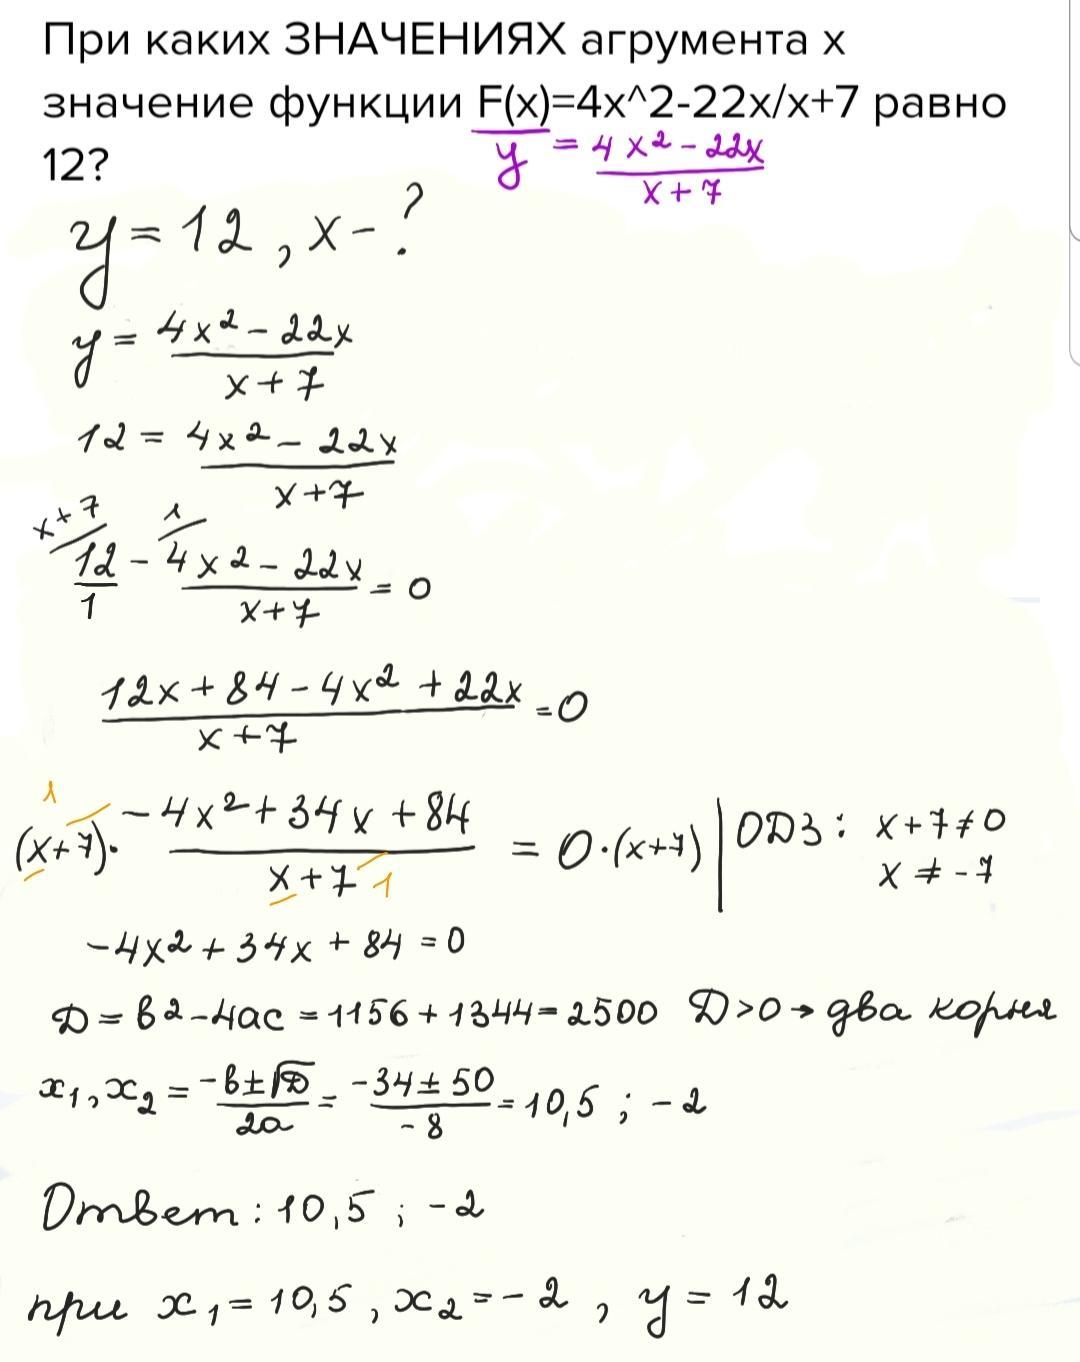 При каких ЗНАЧЕНИЯХ агрумента х
значение функции F(x)=4x^2-22x/x+7 равно
12?
y = (4x² - 22x)/(x + 7)
y = 12, x - ?
y = (4x² - 22x)/(x + 7)
12 = (4x² - 22x)/(x + 7)
x+7 1
12/1 - (4x² - 22x)/(x+7) = 0
(12x + 84 - 4x² + 22x)/(x + 7) = 0
1
(x+7)· (-4x² + 34x + 84)/(x + 7) = 0·(x+7) | ОДЗ: x + 7 ≠ 0
1 x ≠ -7
-4x² + 34x + 84 = 0
Д = в² - 4ас = 1156 + 1344 = 2500 Д > 0 → два корня
x₁, x₂ = (-в ± √Д)/2а = (-34 ± 50)/-8 = 10,5 ; -2
Ответ: 10,5 ; -2
при x₁ = 10,5, x₂ = -2, y = 12